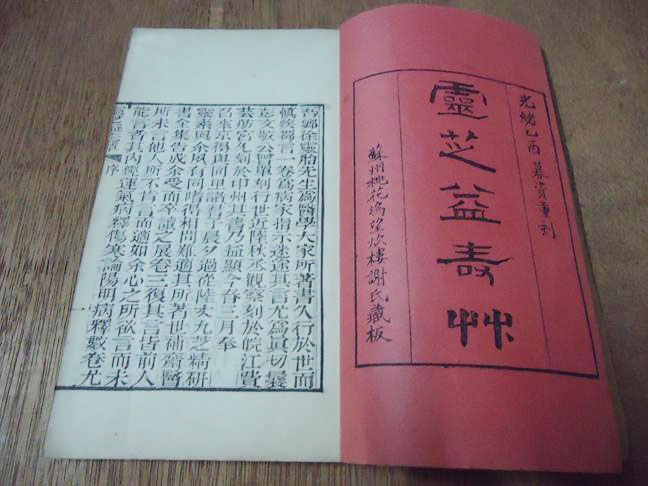 光緒乙酉募資重刊
靈芝益壽艸
蘇州桃花塢望炊樓謝氏藏板
吾鄉徐靈胎先生爲醫學大家所著書久行於世而
愼疾芻言一卷爲病家指示迷途其言尤爲眞切曩
彭文敬公曾單刻行世近陸秋丞觀察刻於皖江費
芸舫宮允刻於中州其書乃益顯今春三月奉
召來京得與同里諸君子晨夕過從陸丈九芝精研
靈素與余夙有同嗜得相問難適其所著世補齋醫
書六集告成余受而卒讀之展卷三復其言皆前人
所未言他人所不肯言而適如余心之所欲言而未
能言者其內經運氣病釋傷寒論陽明病釋數卷尤
序 一